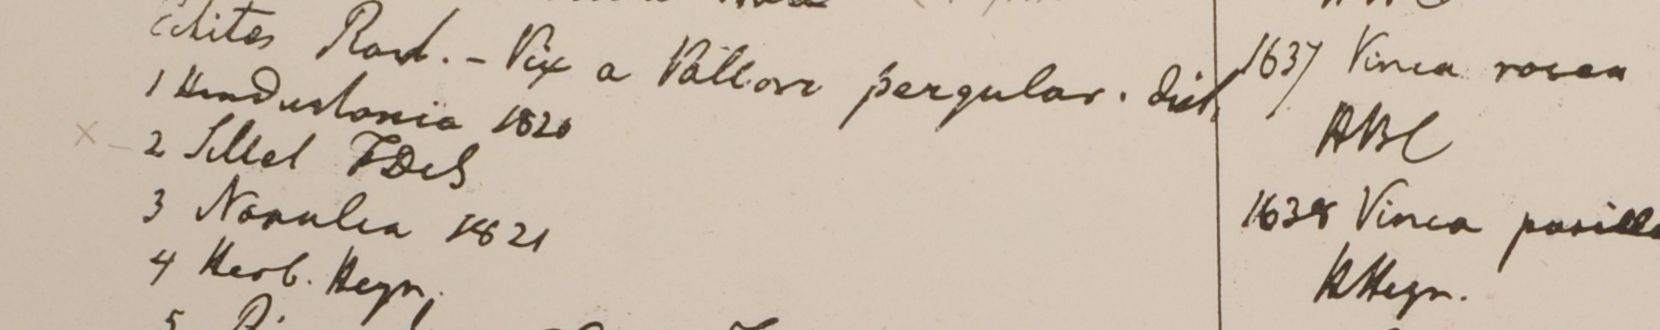 Echites Roxb. - Vix a Vallari pergular. dist.
1 Hindustania 1820
2 Sillet FDeS
3 Napalia 1821
4 Herb. Heyn.
5
1637 Vinca rosea
HBC
1638 Vinca pusilla
HHeyn.